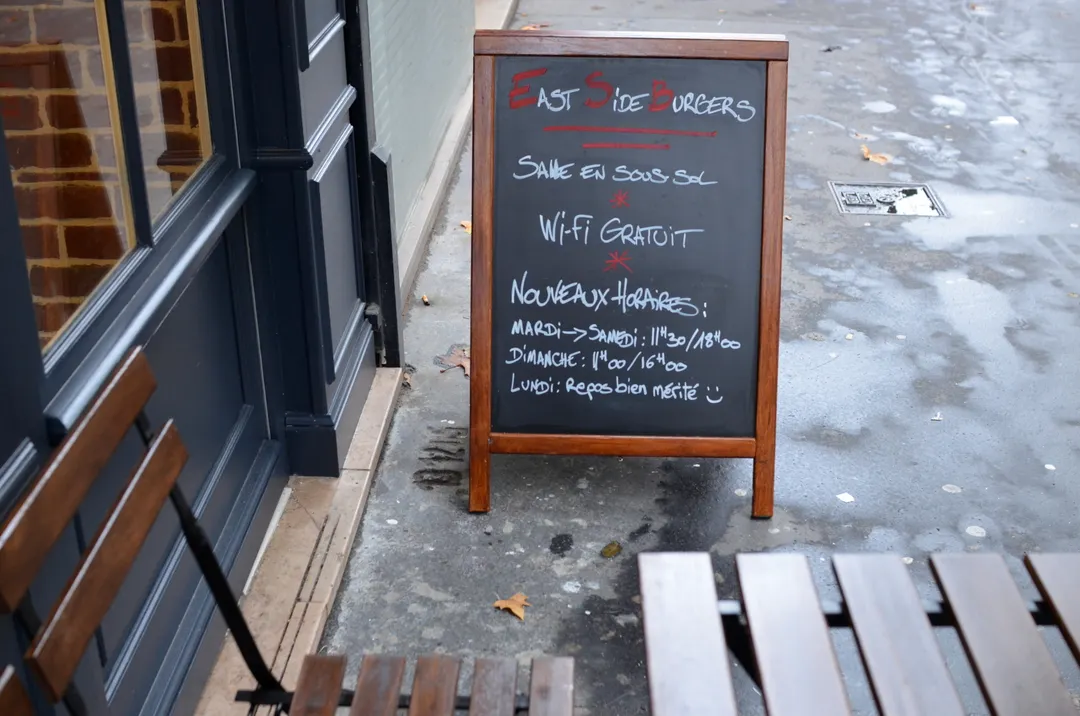 EAST SIDE BURGERS
SALLE EN SOUS-SOL
WI-FI GRATUIT
NOUVEAUX HORAIRES:
MARDI→SAMEDI: 11H30/18H00
DIMANCHE: 11H00/16H00
LUNDI: Repos bien mérité :)